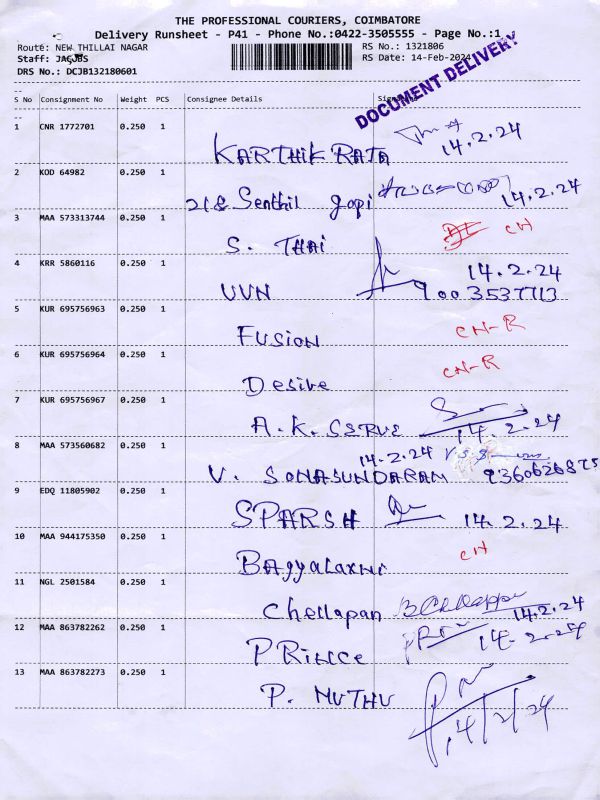 THE PROFESSIONAL COURIERS, COIMBATORE
Delivery Runsheet - P41 - Phone No.:0422-3505555 - Page No.:1
Route: NEW THILLAI NAGAR
RS No.: 1321806
Staff: JAGJBS
RS Date: 14-Feb-2024
DRS No.: DCJB132180601
DOCUMENT DELIVERY
S No Consignment No Weight PCS Consignee Details
1 CNR 1772701 0.250 1 KARTHIK RAJA 14.2.24
2 KOD 64982 0.250 1 218 Senthil gopi 14.2.24
3 MAA 573313744 0.250 1 S. THAI CH
4 KRR 5860116 0.250 1 UVN 14.2.24
9003537713
5 KUR 695756963 0.250 1 FUSION CN-R
6 KUR 695756964 0.250 1 Desire CN-R
7 KUR 695756967 0.250 1 A.K. SERVE 14.2.24
8 MAA 573560682 0.250 1 V. SONASUNDARAM 14.2.24
9360626875
9 EDQ 11805902 0.250 1 SPARSH 14.2.24
10 MAA 944175350 0.250 1 BAGYALAXMI CH
11 NGL 2501584 0.250 1 Chellapan B.Chellappa 14.2.24
12 MAA 863782262 0.250 1 PRINCE 14-2-24
13 MAA 863782273 0.250 1 P. MUTHU 14/2/24